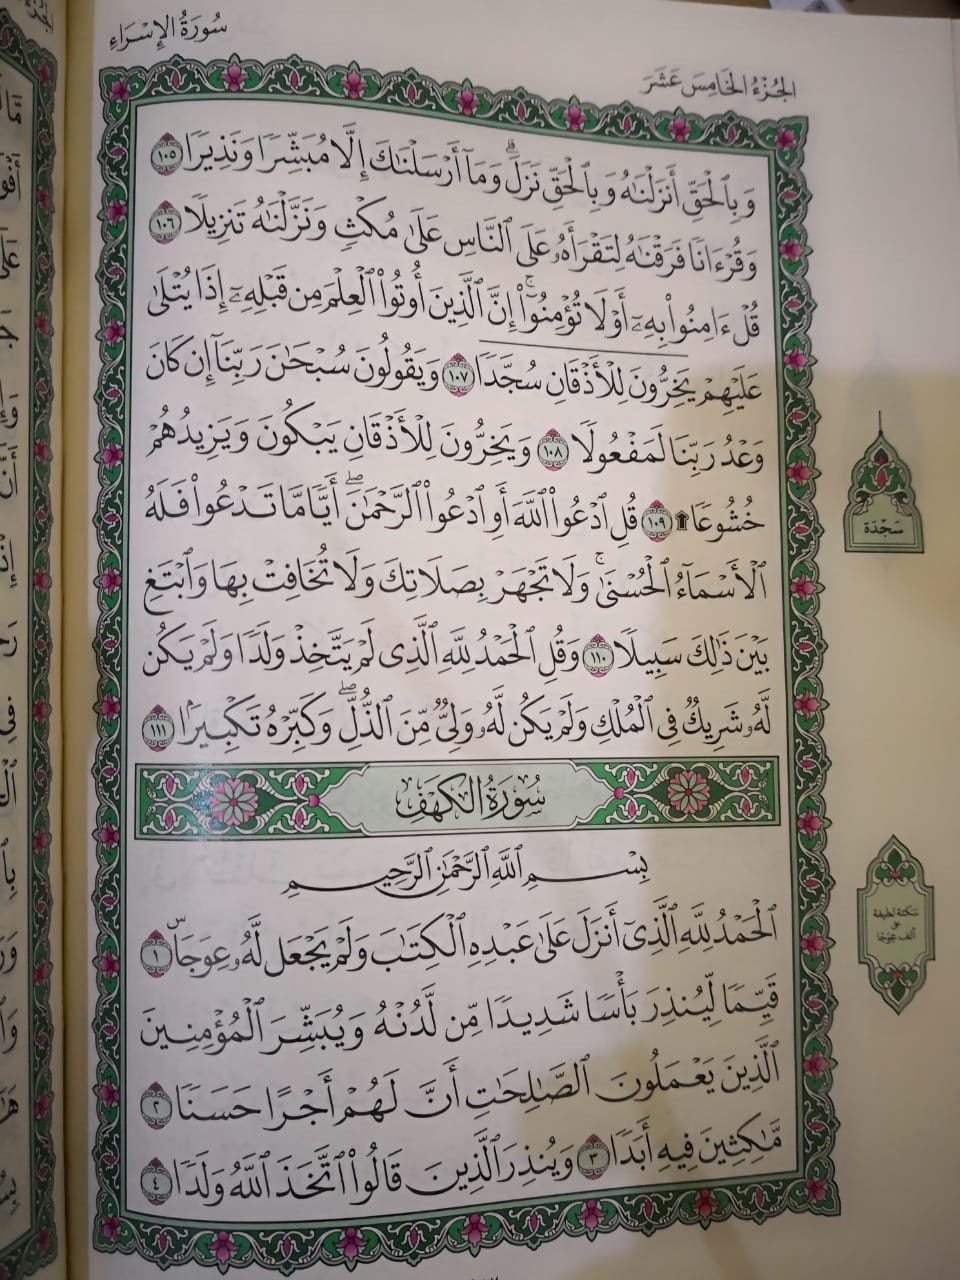 سُورَةُ الإِسْرَاءِ
الجُزْءُ الخَامِسَ عَشَرَ
وَبِٱلْحَقِّ أَنزَلْنَٰهُ وَبِٱلْحَقِّ نَزَلَ ۗ وَمَآ أَرْسَلْنَٰكَ إِلَّا مُبَشِّرًا وَنَذِيرًا ١٠٥
وَقُرْءَانًا فَرَقْنَٰهُ لِتَقْرَأَهُۥ عَلَى ٱلنَّاسِ عَلَىٰ مُكْثٍ وَنَزَّلْنَٰهُ تَنزِيلًا ١٠٦
قُلْ ءَامِنُوا۟ بِهِۦٓ أَوْ لَا تُؤْمِنُوٓا۟ ۚ إِنَّ ٱلَّذِينَ أُوتُوا۟ ٱلْعِلْمَ مِن قَبْلِهِۦٓ إِذَا يُتْلَىٰ
عَلَيْهِمْ يَخِرُّونَ لِلْأَذْقَانِ سُجَّدًا ١٠٧ وَيَقُولُونَ سُبْحَٰنَ رَبِّنَآ إِن كَانَ
وَعْدُ رَبِّنَا لَمَفْعُولًا ١٠٨ وَيَخِرُّونَ لِلْأَذْقَانِ يَبْكُونَ وَيَزِيدُهُمْ
خُشُوعًا ۩ ١٠٩ قُلِ ٱدْعُوا۟ ٱللَّهَ أَوِ ٱدْعُوا۟ ٱلرَّحْمَٰنَ ۖ أَيًّا مَّا تَدْعُوا۟ فَلَهُ
ٱلْأَسْمَآءُ ٱلْحُسْنَىٰ ۚ وَلَا تَجْهَرْ بِصَلَاتِكَ وَلَا تُخَافِتْ بِهَا وَٱبْتَغِ
بَيْنَ ذَٰلِكَ سَبِيلًا ١١٠ وَقُلِ ٱلْحَمْدُ لِلَّهِ ٱلَّذِى لَمْ يَتَّخِذْ وَلَدًا وَلَمْ يَكُن
لَّهُۥ شَرِيكٌ فِى ٱلْمُلْكِ وَلَمْ يَكُن لَّهُۥ وَلِىٌّ مِّنَ ٱلذُّلِّ ۖ وَكَبِّرْهُ تَكْبِيرًۢا ١١١
سُورَةُ الكَهْفِ
بِسْمِ ٱللَّهِ ٱلرَّحْمَٰنِ ٱلرَّحِيمِ
ٱلْحَمْدُ لِلَّهِ ٱلَّذِىٓ أَنزَلَ عَلَىٰ عَبْدِهِ ٱلْكِتَٰبَ وَلَمْ يَجْعَل لَّهُۥ عِوَجَاۜ ١
قَيِّمًا لِّيُنذِرَ بَأْسًا شَدِيدًا مِّن لَّدُنْهُ وَيُبَشِّرَ ٱلْمُؤْمِنِينَ
ٱلَّذِينَ يَعْمَلُونَ ٱلصَّٰلِحَٰتِ أَنَّ لَهُمْ أَجْرًا حَسَنًا ٢
مَّٰكِثِينَ فِيهِ أَبَدًا ٣ وَيُنذِرَ ٱلَّذِينَ قَالُوا۟ ٱتَّخَذَ ٱللَّهُ وَلَدًا ٤
سَجْدَة
سكتة لطيفة
على
ألف عِوَجَا